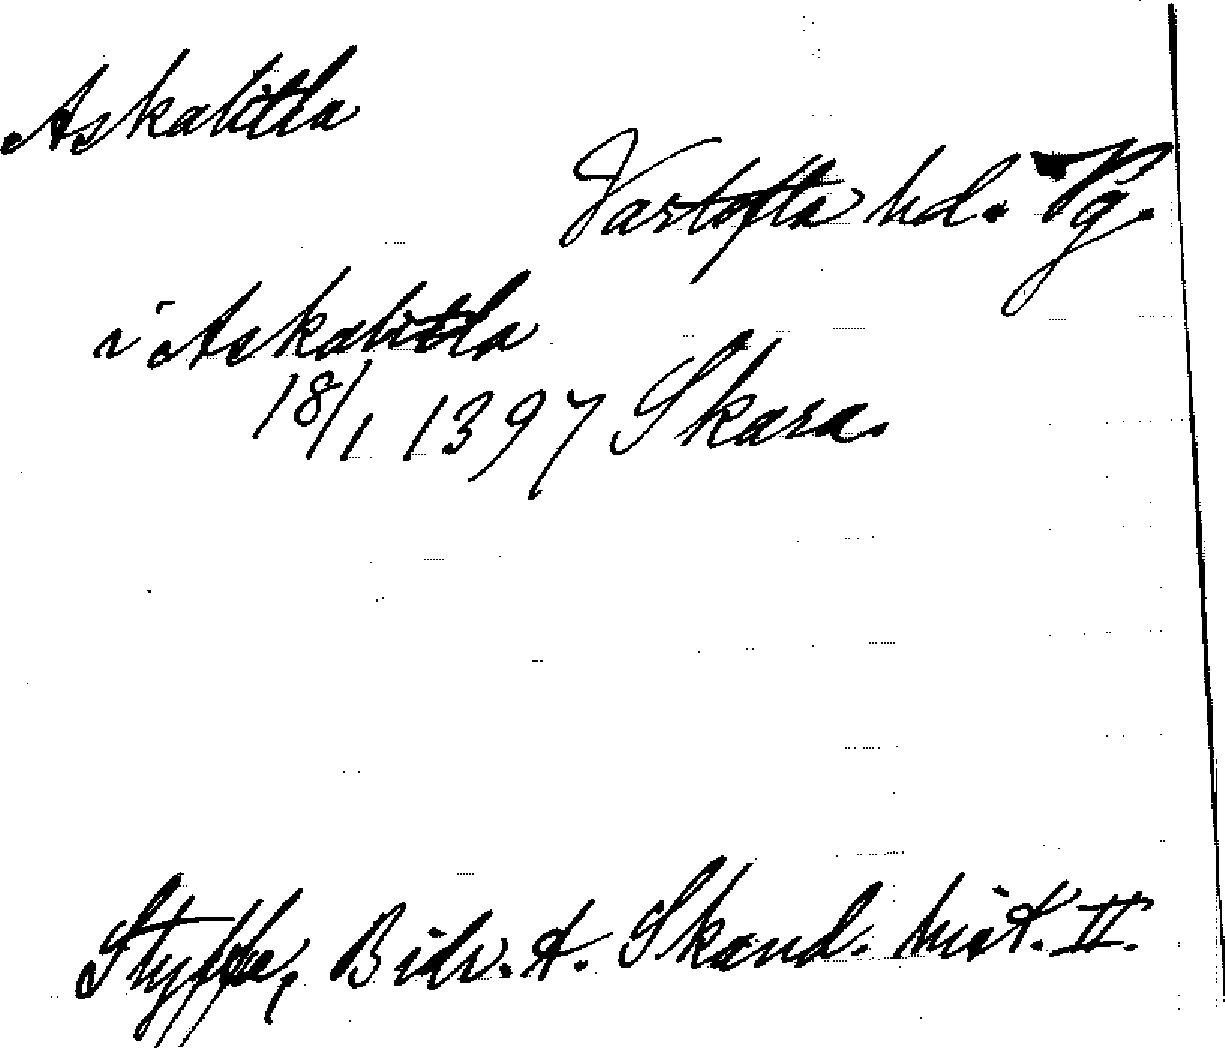 Askabitla
Vartofta hd. Vg.
i Askabitla
18/1 1397 Skara.
Styffe, Bidr. t. Skand. hist. II.